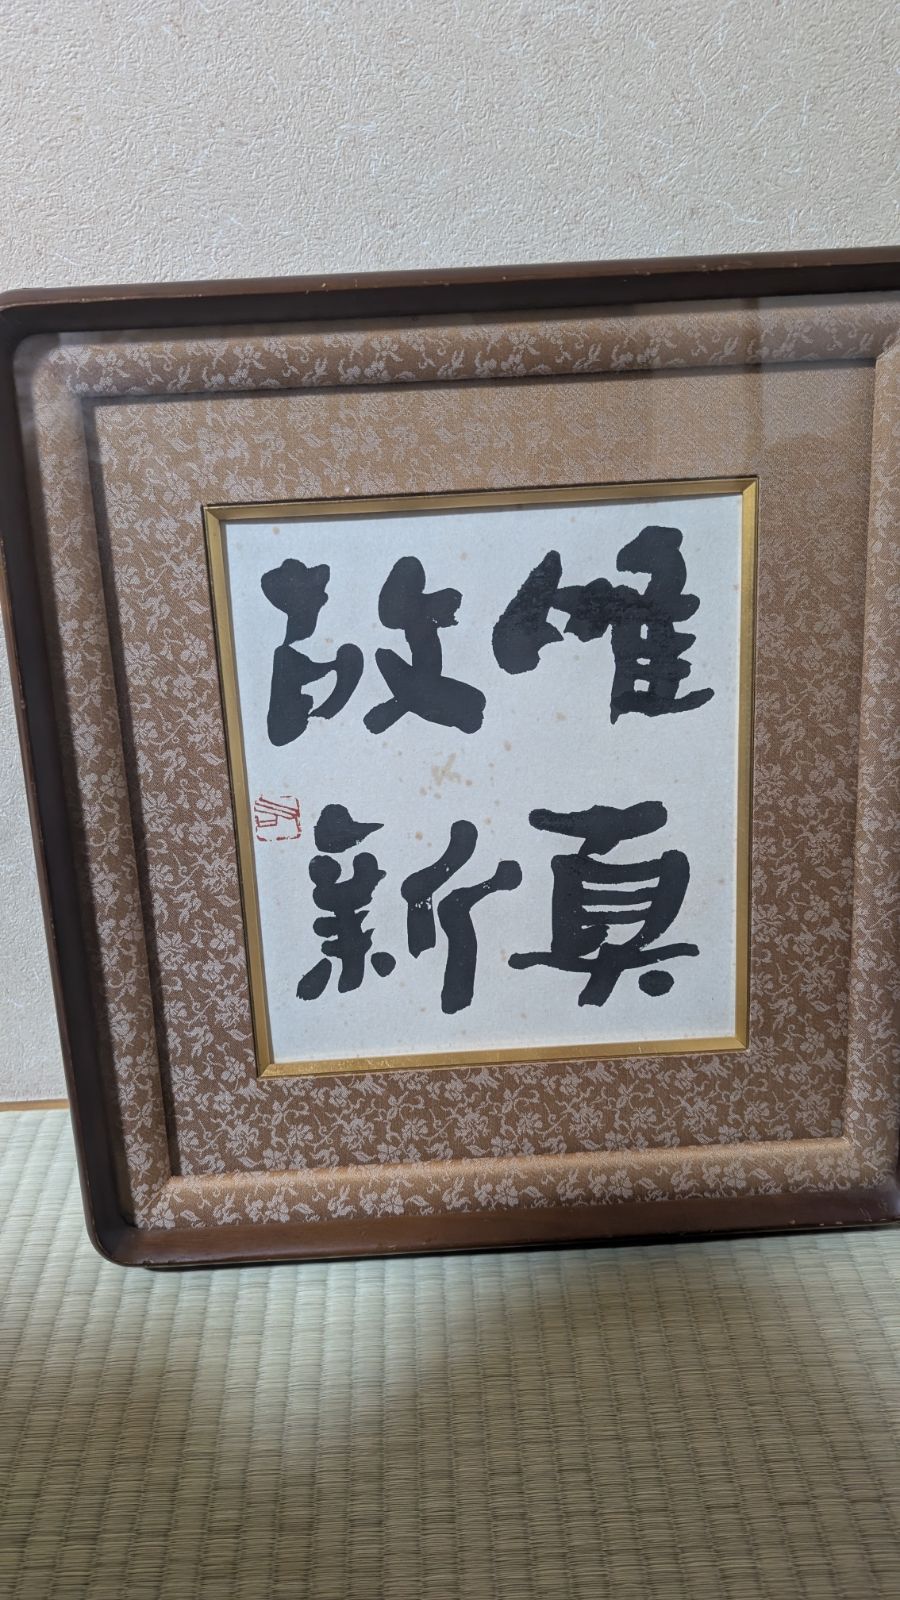 唯真
故新